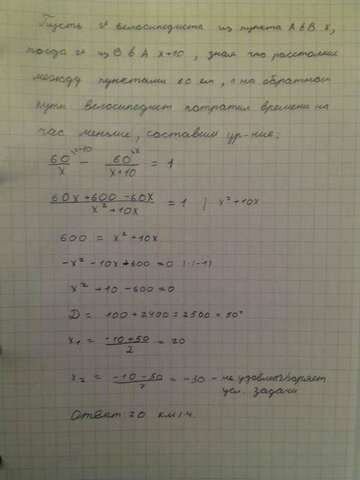 Пусть V велосипедиста из пункта А в В х,
тогда V из В в А х+10, зная что расстояние
между пунктами 60 км, а на обратном
пути велосипедист потратил времени на
час меньше, составим ур-ние:
60/x ^x+10 - 60/x+10 ^x = 1
60x+600-60x/x²+10x = 1 | x²+10x
600 = x²+10x
-x²-10x+600=0 |·(-1)
x²+10-600=0
D = 100+2400=2500=50²
x₁ = -10+50/2 = 20
x₂ = -10-50/2 = -30 - не удовлетворяет
усл. задачи
Ответ 20 км/ч.